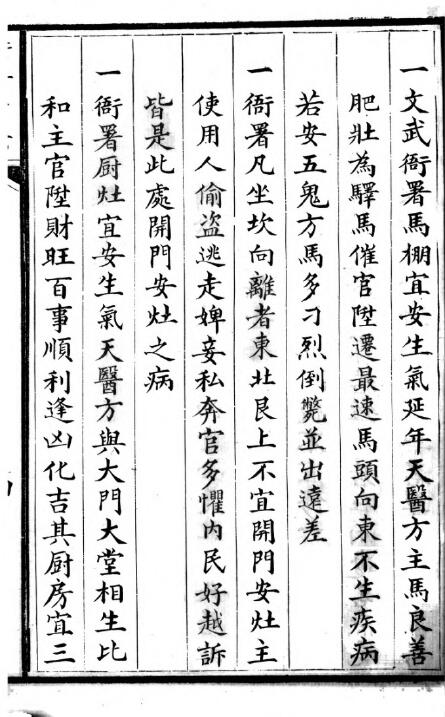 一文武衙署馬棚宜安生氣延年天醫方主馬良善
肥壯為驛馬催官陞遷最速馬頭向東不生疾病
若安五鬼方馬多刁烈倒斃並出遠差
一衙署凡坐坎向離者東北艮上不宜開門安灶主
使用人偷盗逃走婢妾私奔官多懼内民好越訴
皆是此處開門安灶之病
一衙署厨灶宜安生氣天醫方與大門大堂相生比
和主官陞財旺百事順利逢凶化吉其厨房宜三